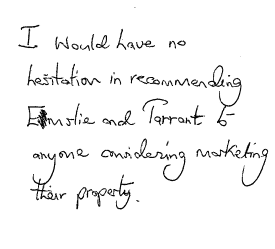 I would have no
hesitation in recommending
Elmslie and Tarrant to
anyone considering marketing
their property.